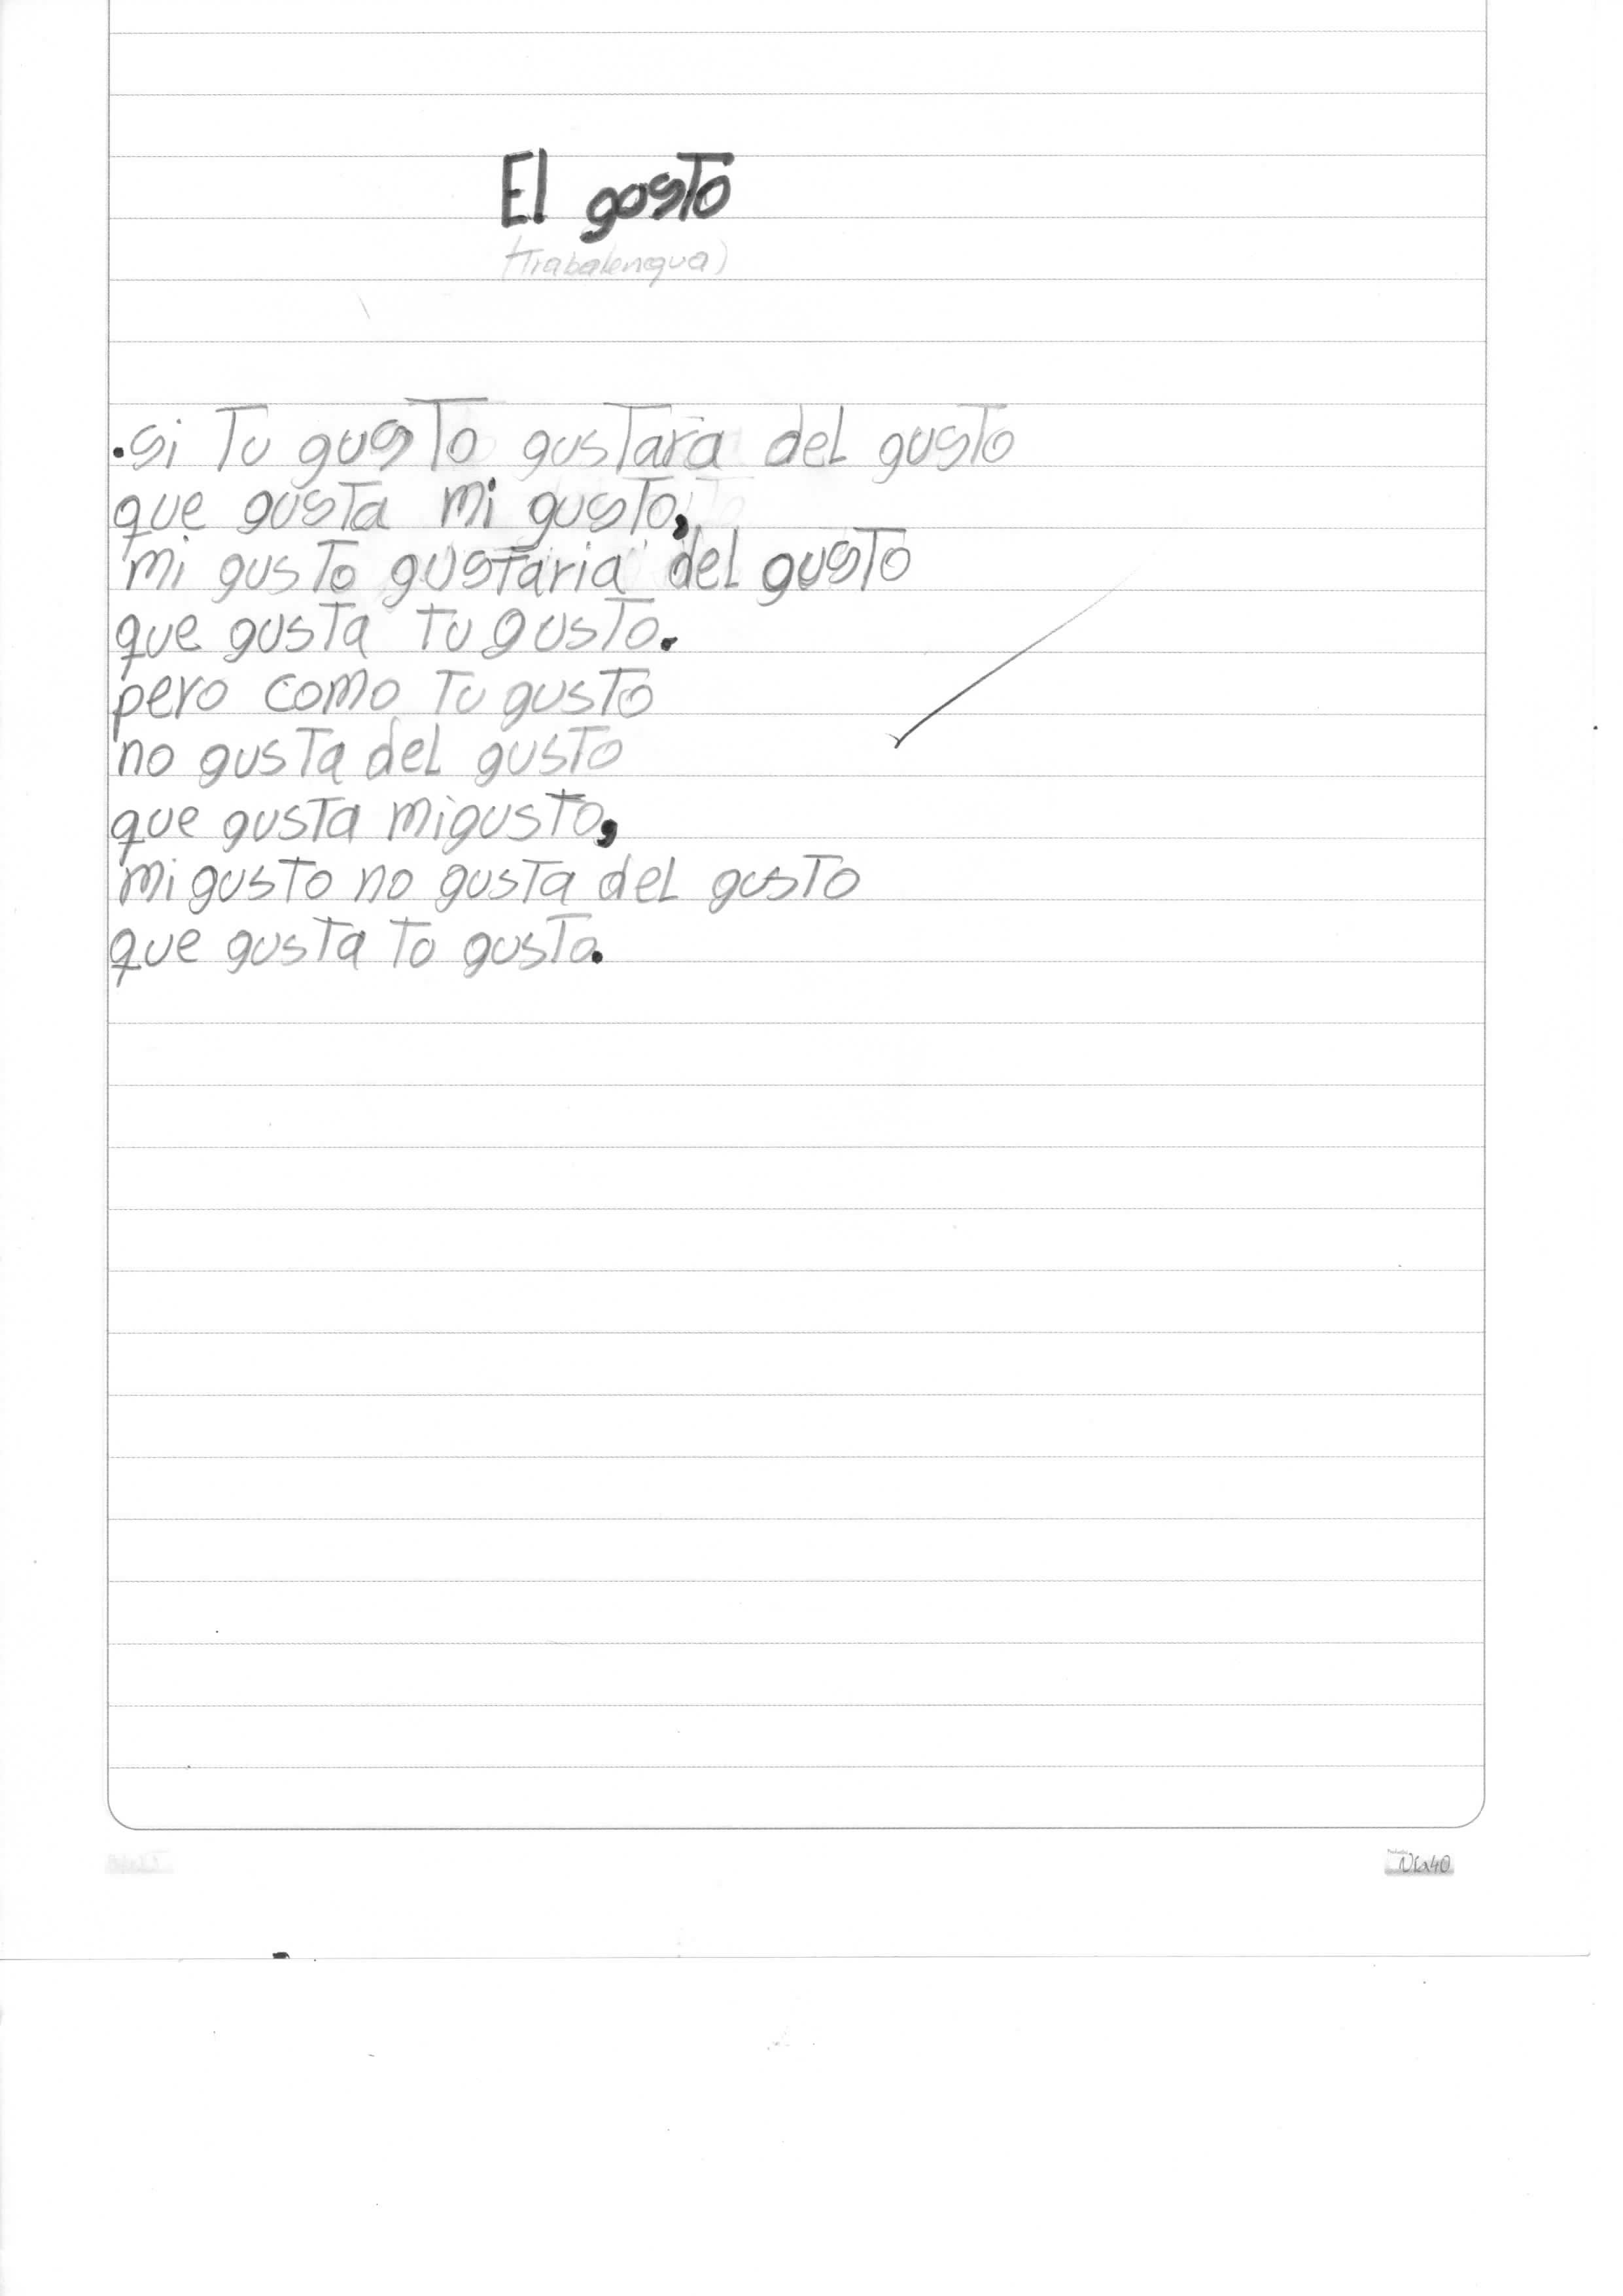 El gosto
(Trabalengua)
.si Tu gusTo gusTara del gusTo
que gusTa mi gusTo,
mi gusTo gusTaria del gusTo
que gusTa tu gusTo.
pero como Tu gusTo
no gusTa del gusTo
que gusTa migusTo,
mi gusTo no gusTa del gusTo
que gusTa To gusTa.